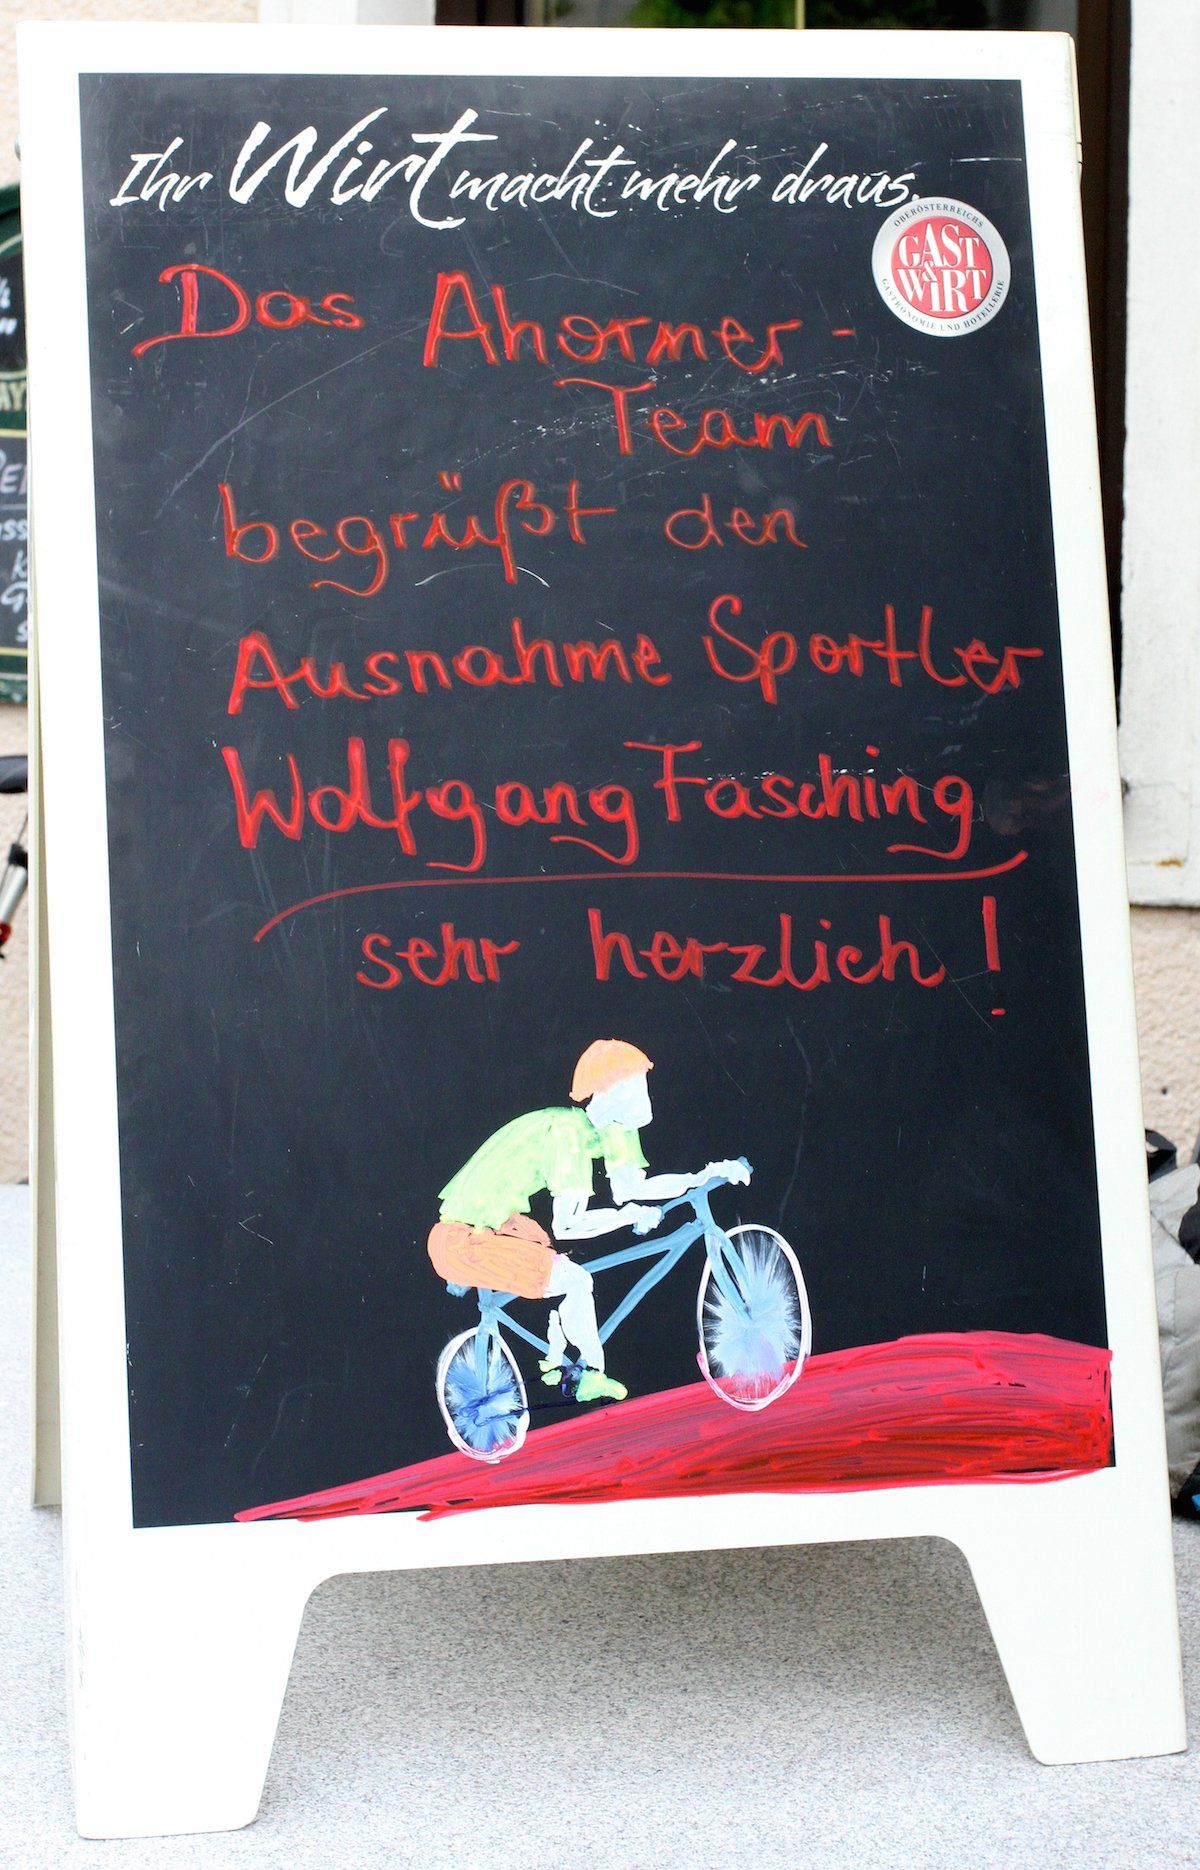 Ihr Wirt macht mehr draus.
OBERÖSTERREICHS
GAST
&
WiRT
GASTRONOMIE UND HOTELLERIE
Das Ahorner-
Team
begrüßt den
Ausnahme Sportler
Wolfgang Fasching
sehr herzlich!